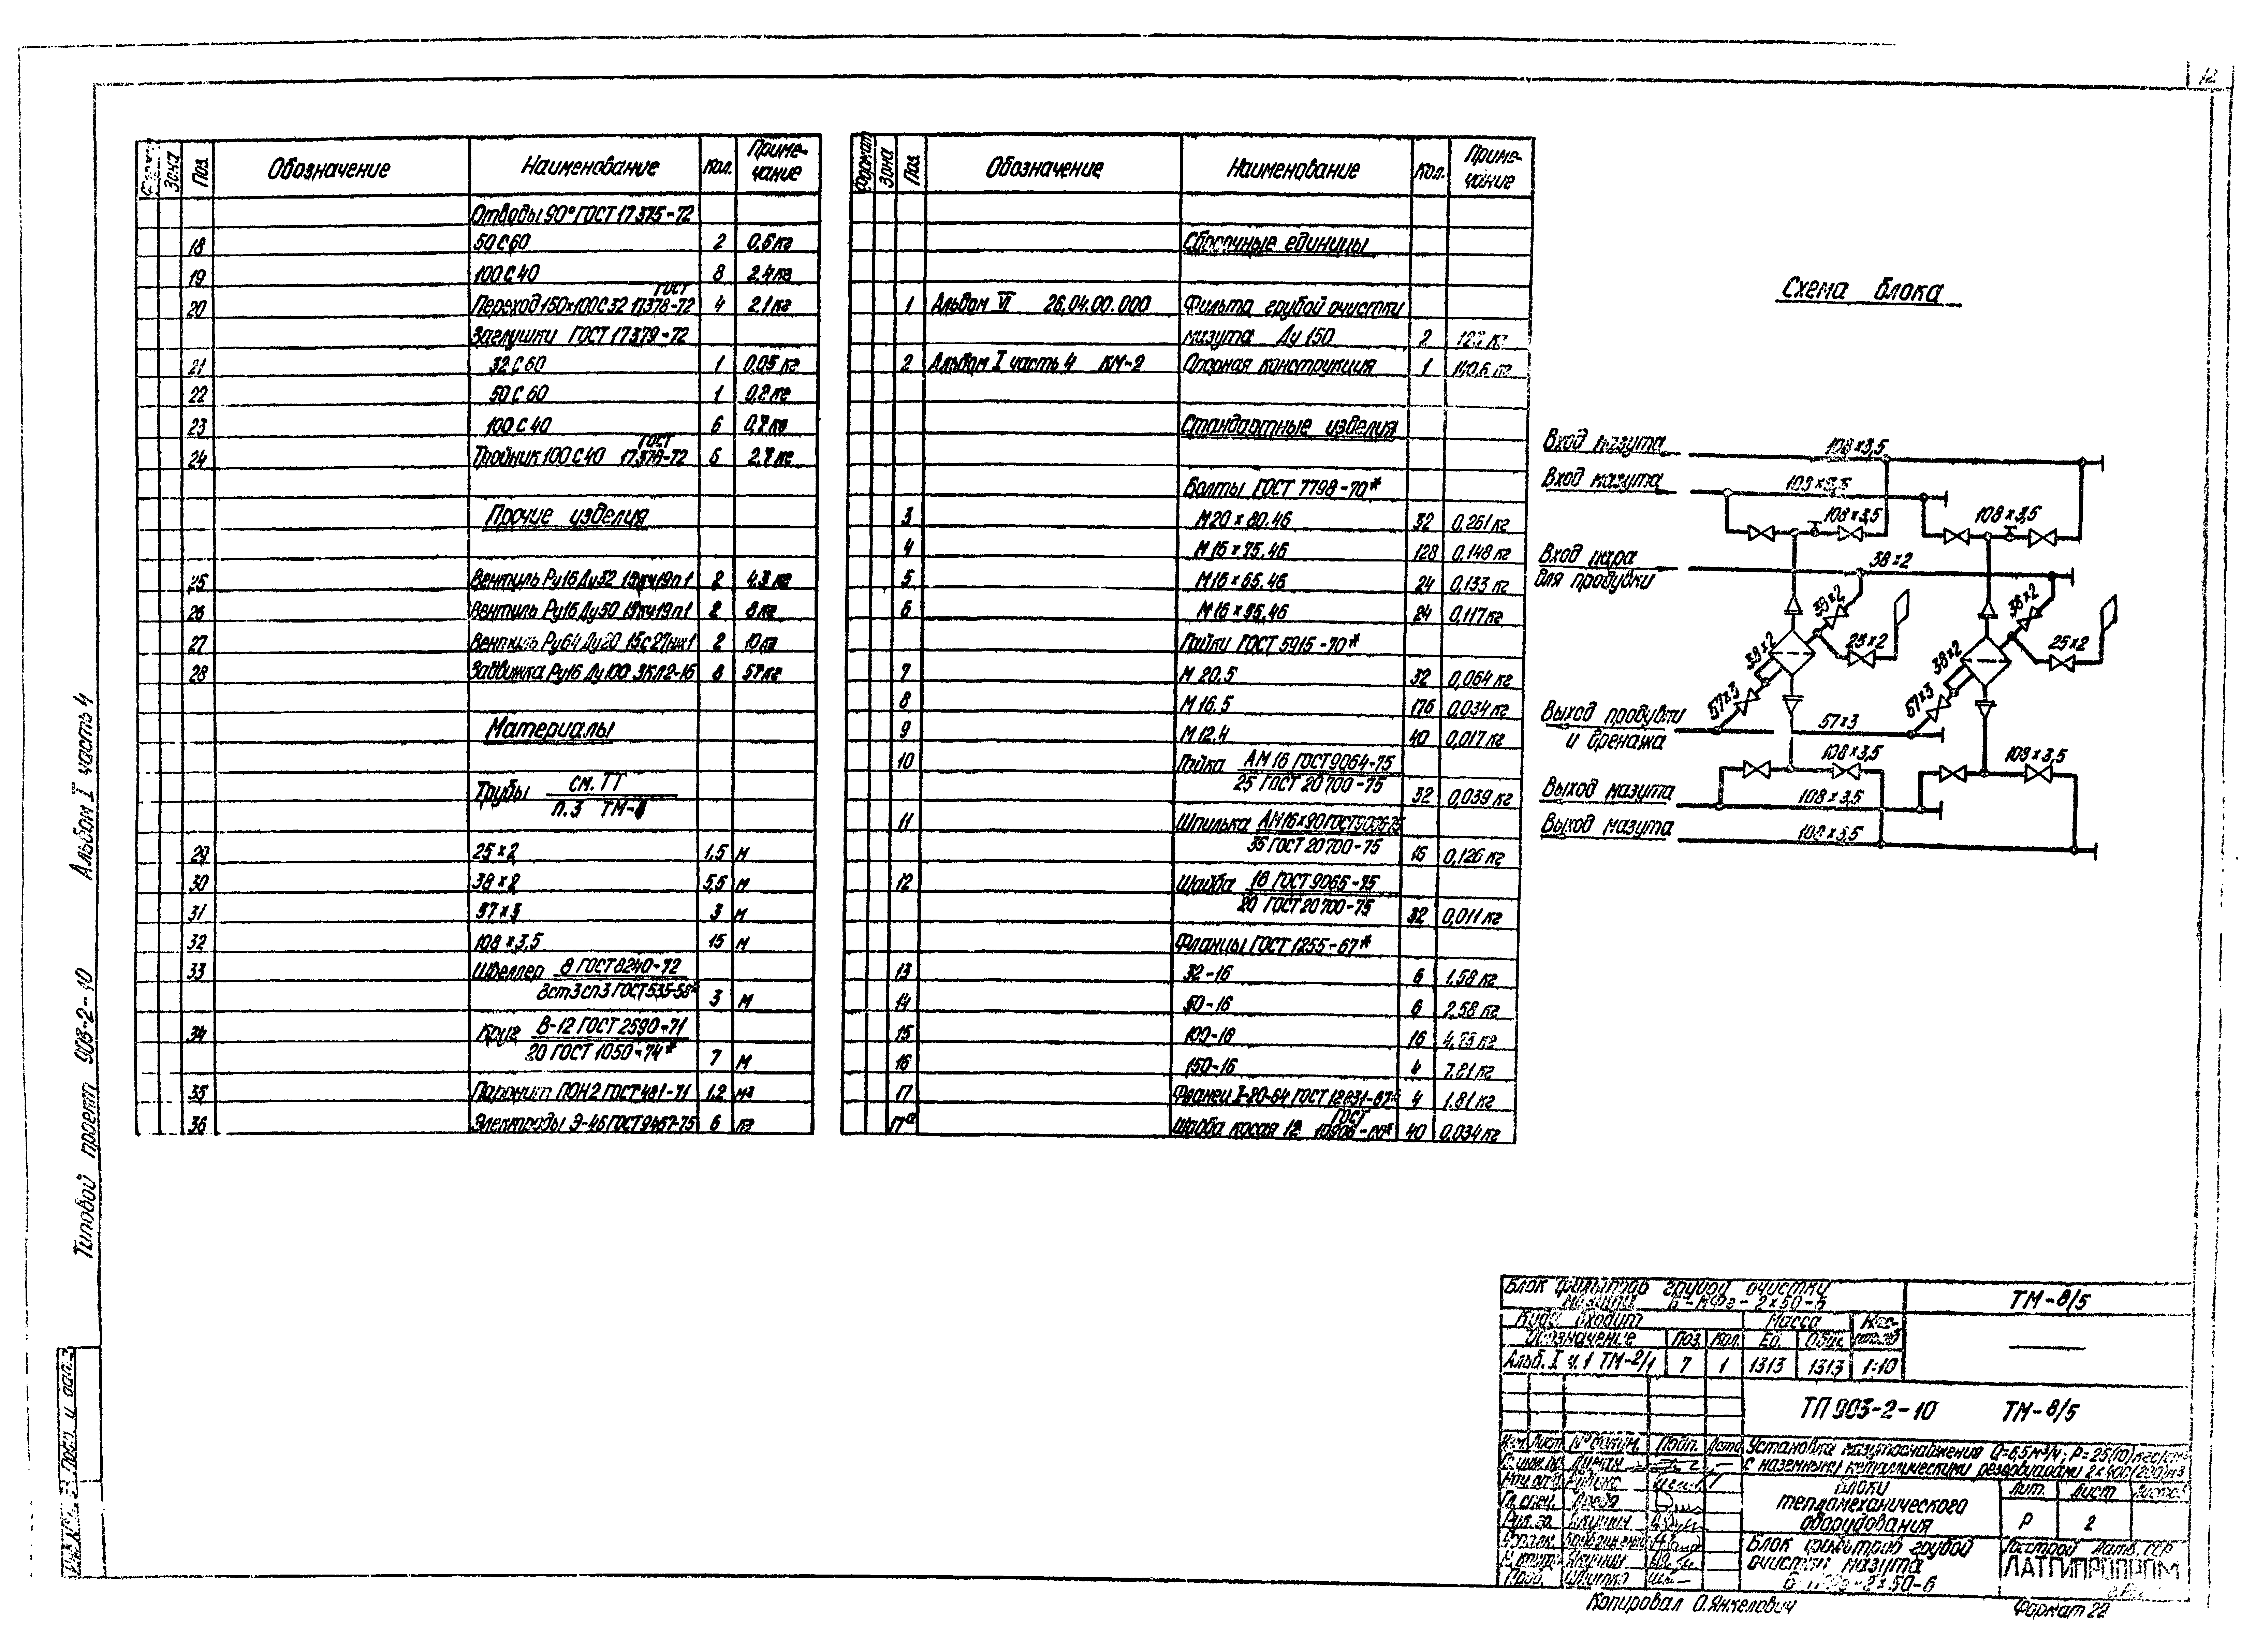 12
Формат Зона Поз. Обозначение Наименование Кол. Примечание
Отводы 90° ГОСТ 17375-72
18 50 С 60 2 0,6 кг
19 100 С 40 8 2,4 кг
20 Переход 150х100 С 32 ГОСТ 17378-72 4 2,1 кг
Заглушки ГОСТ 17379-72
21 32 С 60 1 0,05 кг
22 50 С 60 1 0,2 кг
23 100 С 40 6 0,7 кг
24 Тройник 100 С 40 ГОСТ 17376-72 6 2,7 кг
Прочие изделия
25 Вентиль Ру16 Ду32 15кч19п1 2 4,3 кг
26 Вентиль Ру16 Ду50 15кч19п1 2 8 кг
27 Вентиль Ру64 Ду20 15с27нж1 2 10 кг
28 Задвижка Ру16 Ду100 ЗКЛ2-16 8 57 кг
Материалы
Трубы см. ТТ
п.3 ТМ-
29 25×2 1,5 м
30 38×2 5,5 м
31 57×3 3 м
32 108×3,5 15 м
33 Швеллер 8 ГОСТ 8240-72
Вст3сп3 ГОСТ 535-58* 3 м
34 Круг В-12 ГОСТ 2590-71
20 ГОСТ 1050-74* 7 м
35 Паронит ПОН2 ГОСТ 481-71 1,2 м²
36 Электроды Э-46 ГОСТ 9467-75 6 кг
Формат Зона Поз. Обозначение Наименование Кол. Примечание
Сборочные единицы
1 Альбом VI 26.04.00.000 Фильтр грубой очистки
мазута Ду 150 2 кг
2 Альбом I часть 4 КМ-2 Опорная конструкция 1 140,6 кг
Стандартные изделия
Болты ГОСТ 7798-70*
3 М20×80.46 32 0,261 кг
4 М16×75.46 128 0,148 кг
5 М16×65.46 24 0,133 кг
6 М16×55.46 24 0,117 кг
Гайки ГОСТ 5915-70*
7 М 20.5 32 0,064 кг
8 М 16.5 176 0,034 кг
9 М 12.4 40 0,017 кг
10 Гайка АМ 16 ГОСТ 9064-75
25 ГОСТ 20700-75 32 0,039 кг
11 Шпилька АМ16×90 ГОСТ 9066-75
35 ГОСТ 20700-75 16 0,126 кг
12 Шайба 16 ГОСТ 9065-75
20 ГОСТ 20700-75 32 0,011 кг
Фланцы ГОСТ 1255-67*
13 32-16 6 1,58 кг
14 50-16 6 2,58 кг
15 100-16 16 4,73 кг
16 150-16 4 7,81 кг
17 Фланец I-20-64 ГОСТ 12831-67* 4 1,81 кг
17а Шайба косая 12 ГОСТ 10906- 40 0,034 кг
Схема блока
Вход мазута 108×3,5
Вход мазута 108×3,5
108×3,5 108×3,5
Вход пара
для продувки 38×2
38×2 38×2
38×2 25×2 38×2 25×2
57×3 57×3
Выход продувки
и дренажа 57×3
108×3,5 108×3,5
Выход мазута 108×3,5
Выход мазута 108×3,5
Типовой проект 903-2-10 Альбом I часть 4
Подп. и дата
Блок фильтров грубой очистки
мазута Б-МФг-2×50-6 ТМ-8/5
Куда входит Масса
Обозначение Поз. Кол. Ед. Общ.
Альб. I ч.1 ТМ-2/1 7 1 1313 1313 1:10
ТП 903-2-10 ТМ-8/5
Изм. Лист № докум. Подп. Дата
Установка мазутоснабжения Q=6,5 м³/ч; Р=25(10) кгс/см²
с наземными металлическими резервуарами 2×400(200) м3
Гл. спец.
Рук. гр.
Н. контр.
Пров.
Блоки
тепломеханического
оборудования
Лит. Лист Листов
Р 2
Блок фильтров грубой
очистки мазута
Б-МФг-2×50-6
Госстрой Латв. ССР
ЛАТГИПРОПРОМ
Копировал О. Янкелович
Формат 22